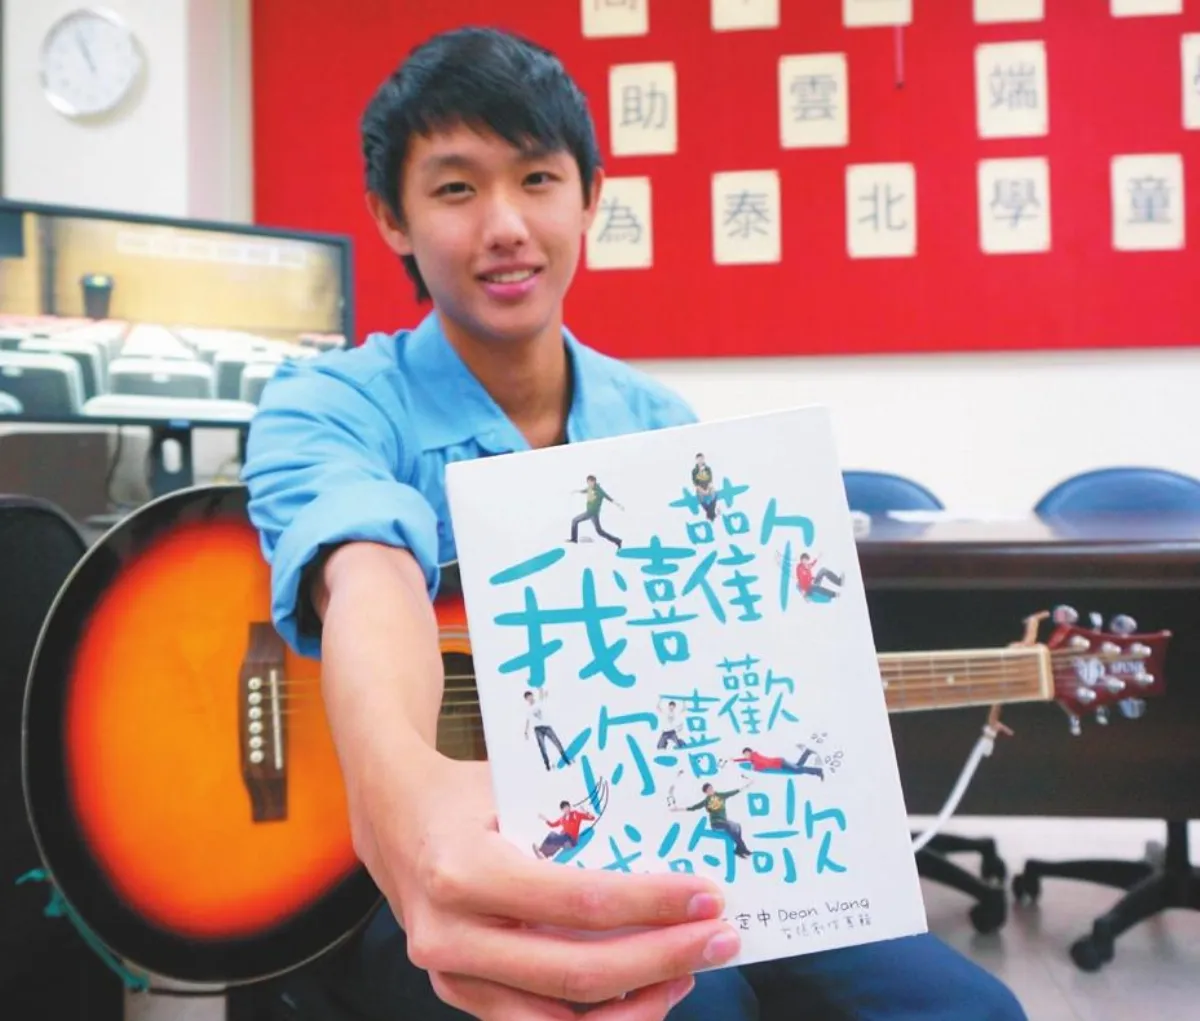 助 雲 端
為 泰 北 學 童
我喜歡
你喜歡
我的歌
定中 Dean Wang
首張創作專輯